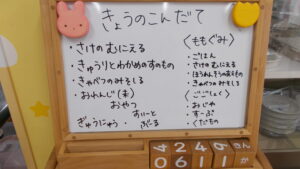 きょうのこんだて
・さけの むにえる
・きゅうりとわかめのすのもの
・きゃべつのみそしる
・おれんじ
おやつ
すいーと
ぎゅうにゅう・
〈ももぐみ〉
・ごはん
・さけの むにえる
・ほうれんそうのおすもの
・きゃべつのみそしる
〈ごごしょく〉
・おじや
・すーぷ
・くだもの